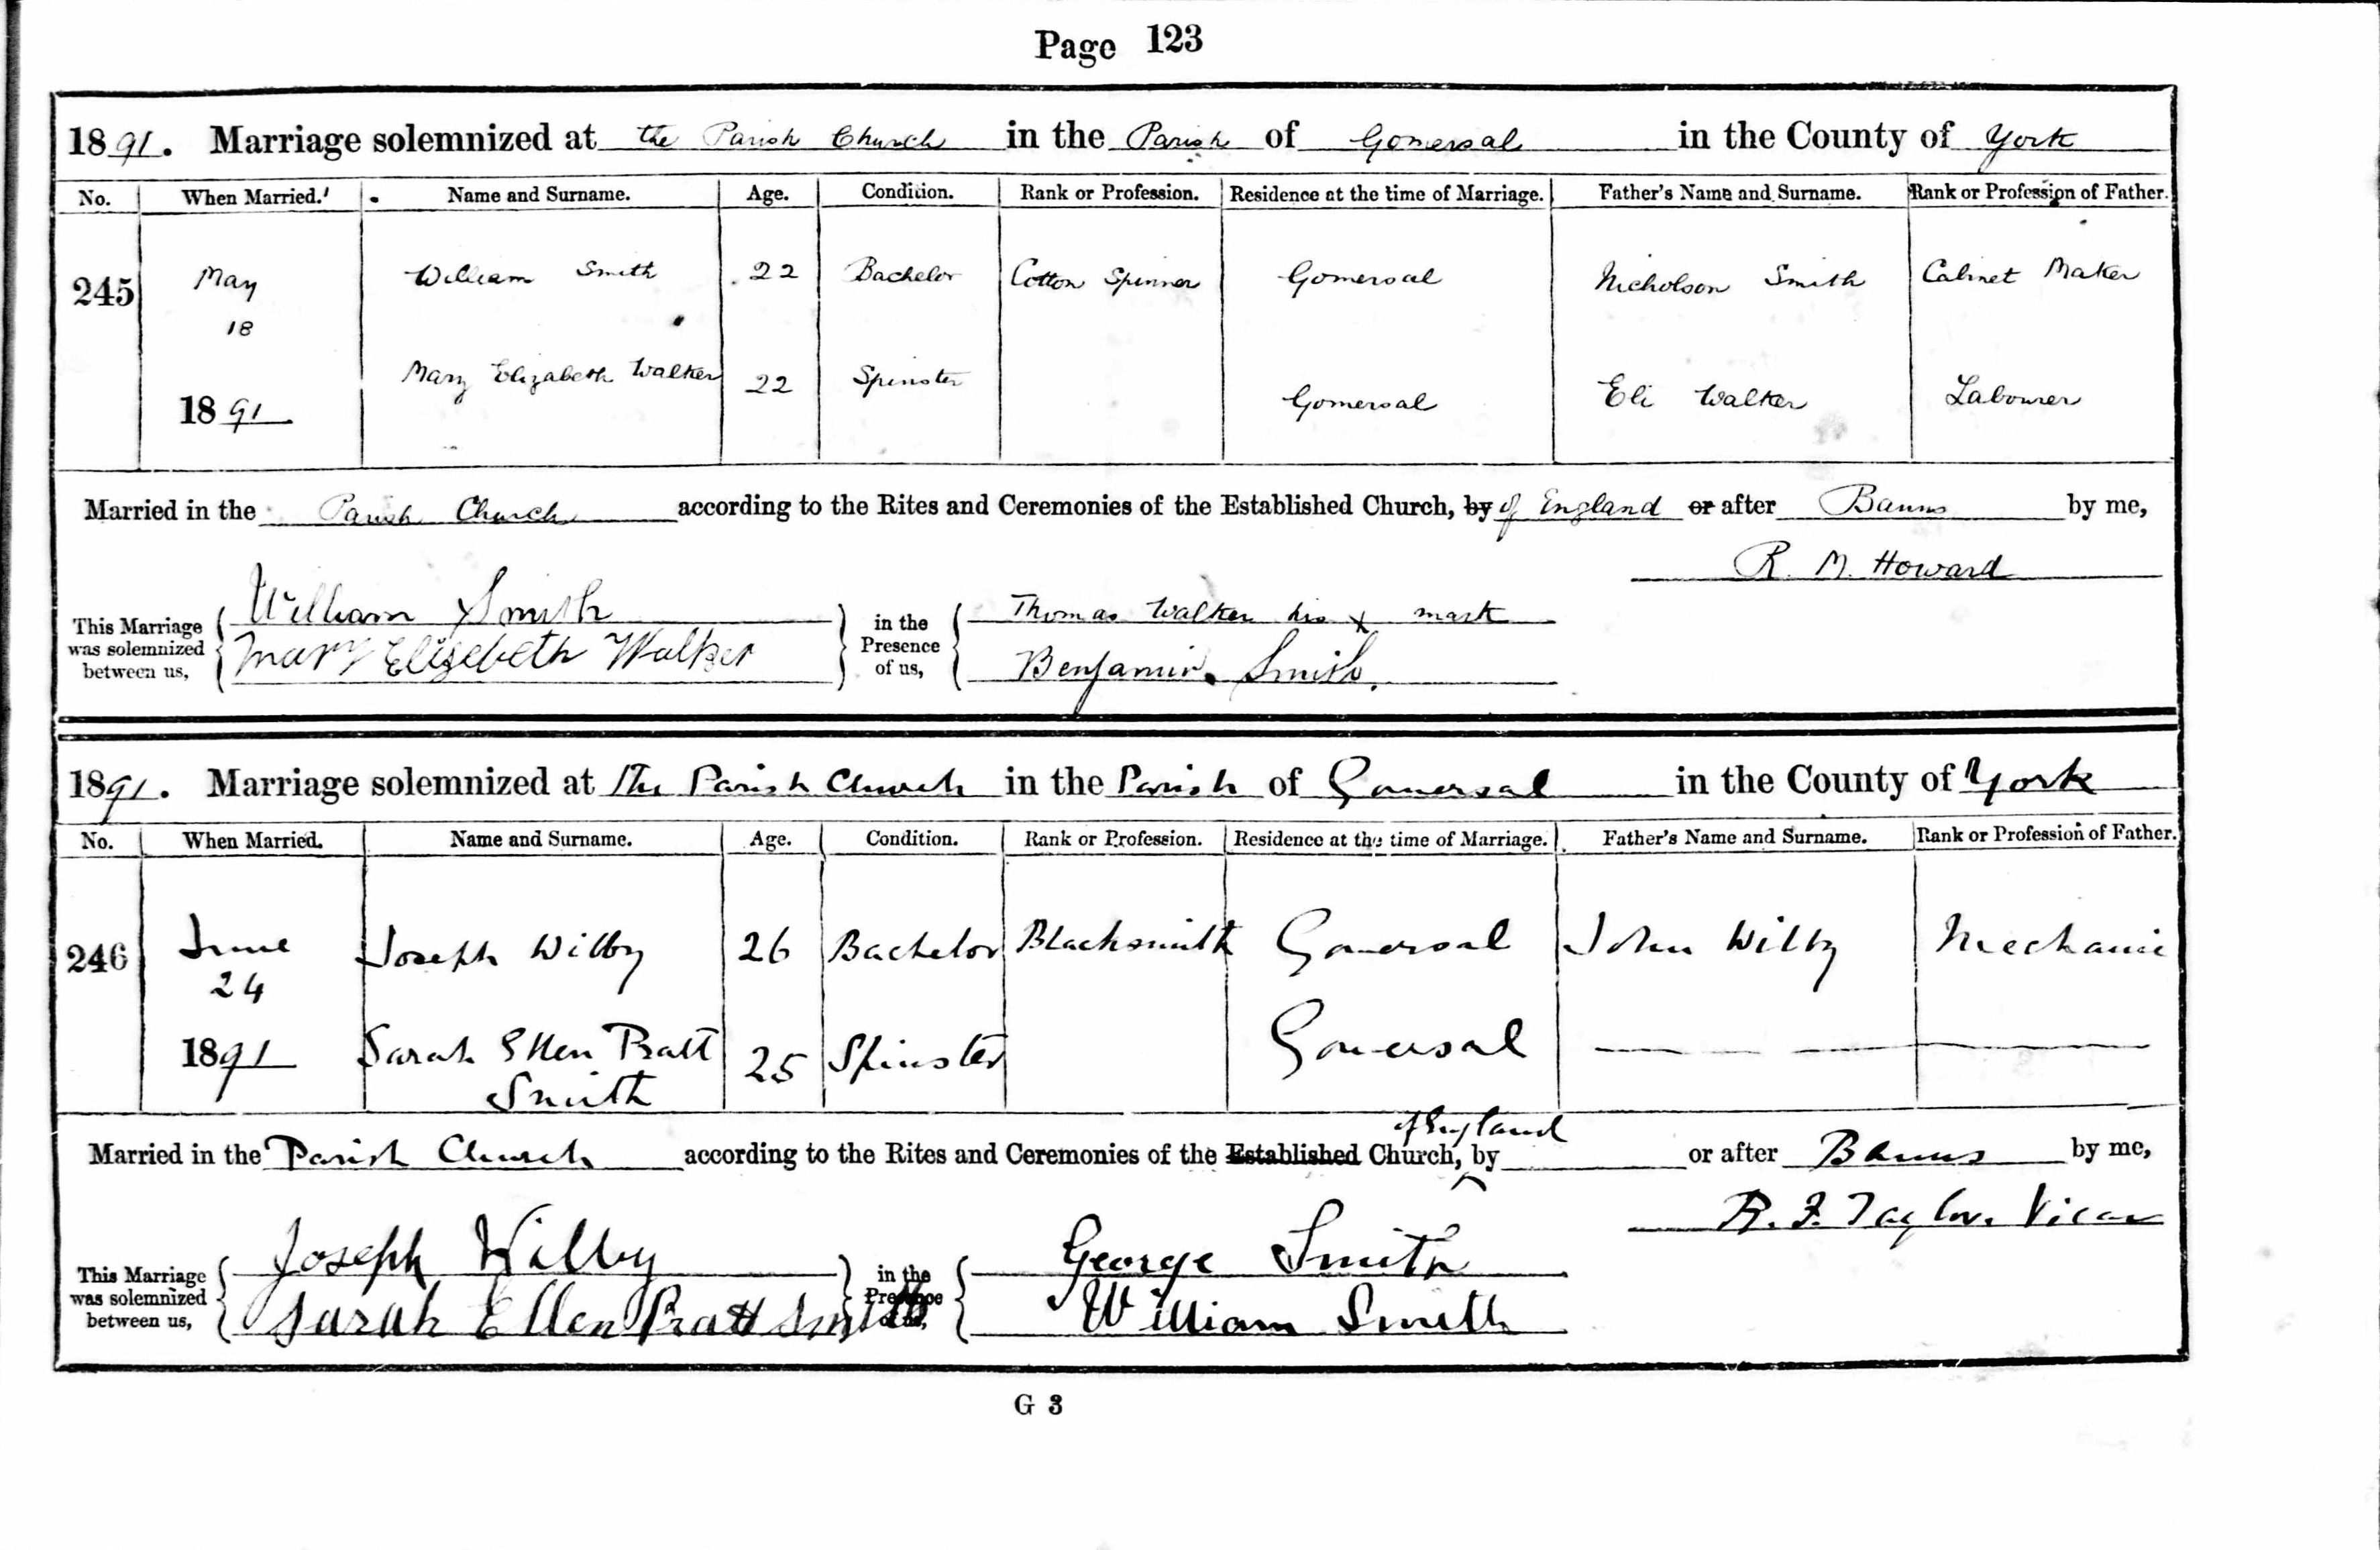 Page 123
1891. Marriage solemnized at the Parish Church in the Parish of Gomersal in the County of York
No. When Married. Name and Surname. Age. Condition. Rank or Profession. Residence at the time of Marriage. Father's Name and Surname. Rank or Profession of Father.
245 May William Smith 22 Bachelor Cotton Spinner Gomersal Nicholson Smith Cabinet Maker
18
Mary Elizabeth Walker 22 Spinster Gomersal Eli Walker Labourer
1891
Married in the Parish Church according to the Rites and Ceremonies of the Established Church, by of England or after Banns by me,
R. M. Howard
This Marriage was solemnized between us, William Smith in the Presence of us, Thomas Walker his x mark
Mary Elizebeth Walker Benjamin Smith.
1891. Marriage solemnized at The Parish Church in the Parish of Gomersal in the County of York
No. When Married. Name and Surname. Age. Condition. Rank or Profession. Residence at the time of Marriage. Father's Name and Surname. Rank or Profession of Father.
246 June Joseph Wilby 26 Bachelor Blacksmith Gomersal John Wilby Mechanic
24
1891 Sarah Ellen Pratt 25 Spinster Gomersal
Smith
of England
Married in the Parish Church according to the Rites and Ceremonies of the Established Church, by or after Banns by me,
R. F. Taylor. Vicar
This Marriage was solemnized between us, Joseph Wilby in the Presence George Smith
Sarah Ellen Pratt Smith William Smith
G 3